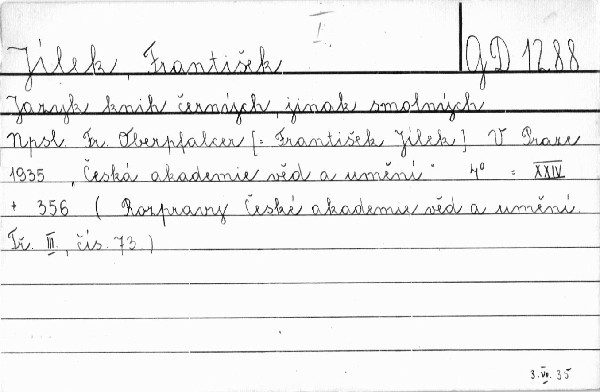 I.
Jílek, František GD 1288
Jazyk knih černých, jinak smolných
Npsl. Fr. Oberpfalcer [= František Jílek] V Praze
1935 „Česká akademie věd a umění" 4° = XXIV
+ 356 ( Rozpravy České akademie věd a umění.
Tř. III., čís. 73.)
3. VII. 35